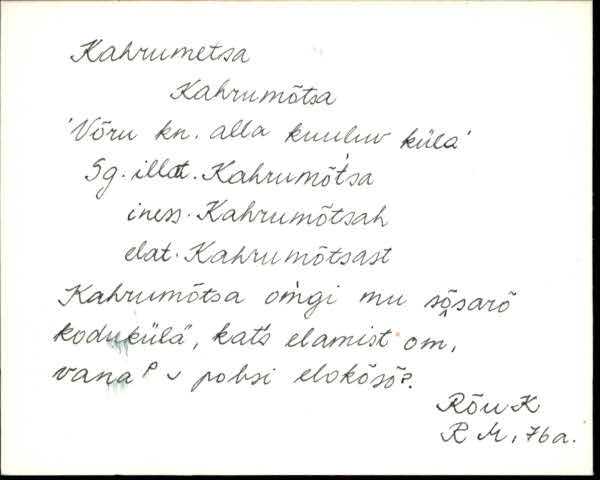 Kahrumetsa
Kahrumõtsa
'Võru kn. alla kuuluv küla'
Sg. illat. Kahrumõt́sa
iness. Kahrumõtsah
elat. Kahrumõtsast
Kahrumõtsa om̀gi mu sõsarõ
kodukülä, kat́s elamist om,
vana? pobsi elokõsõ?.
Rõu K
R M, 76a.